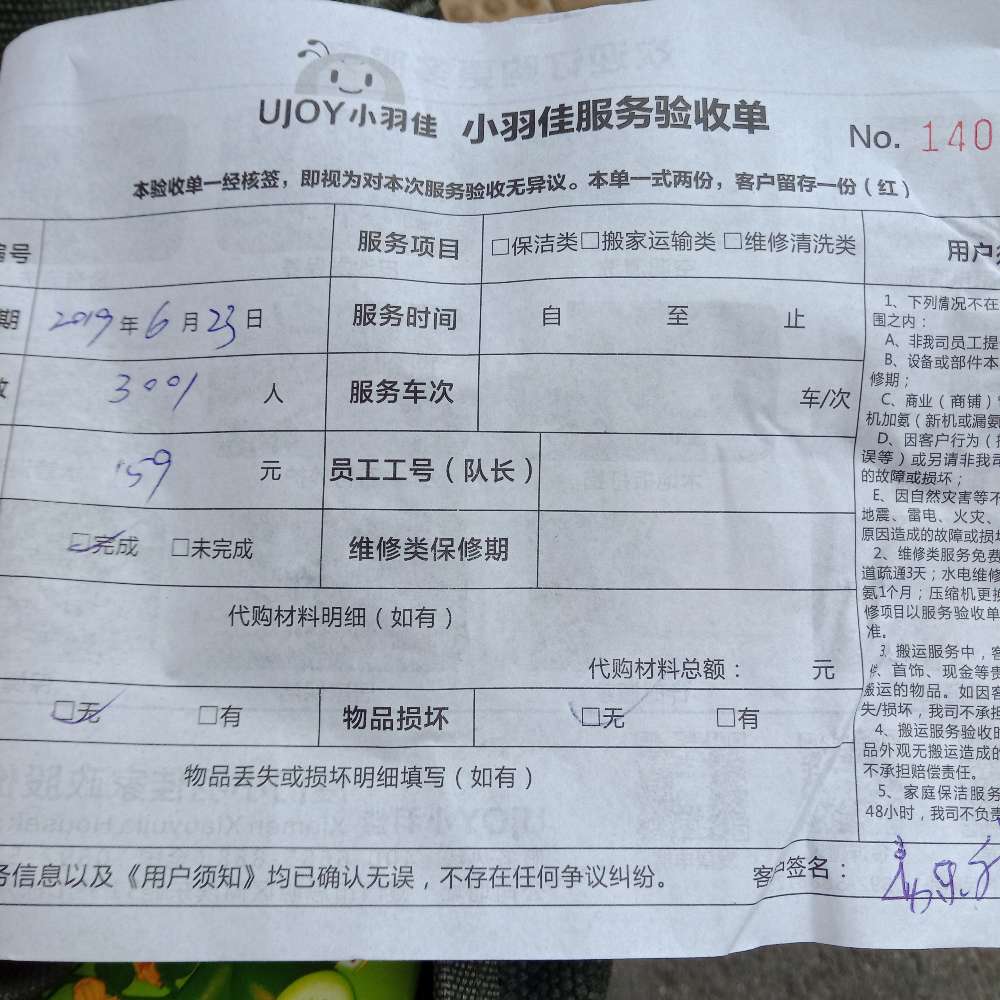 UJOY小羽佳 小羽佳服务验收单
No. 140
本验收单一经核签，即视为对本次服务验收无异议。本单一式两份，客户留存一份（红）
编号
服务项目 □保洁类□搬家运输类 □维修清洗类
期 2019年6月23日 服务时间 自 至 止
数 3001 人 服务车次 车/次
159 元 员工工号（队长）
□完成 □未完成 维修类保修期
代购材料明细（如有）
代购材料总额： 元
□无 □有 物品损坏 □无 □有
物品丢失或损坏明细填写（如有）
务信息以及《用户须知》均已确认无误，不存在任何争议纠纷。 客户签名：
用户须
1、下列情况不在
围之内：
A、非我司员工提
B、设备或部件本
修期；
C、商业（商铺）
机加氨（新机或漏氨
D、因客户行为（
误等）或另请非我司
的故障或损坏；
E、因自然灾害等不
地震、雷电、火灾、
原因造成的故障或损坏
2、维修类服务免费
道疏通3天；水电维修
氨1个月；压缩机更换
修项目以服务验收单
准。
3、搬运服务中，客
、首饰、现金等贵
搬运的物品。如因客
失/损坏，我司不承担
4、搬运服务验收时
品外观无搬运造成的
不承担赔偿责任。
5、家庭保洁服务
48小时，我司不负责